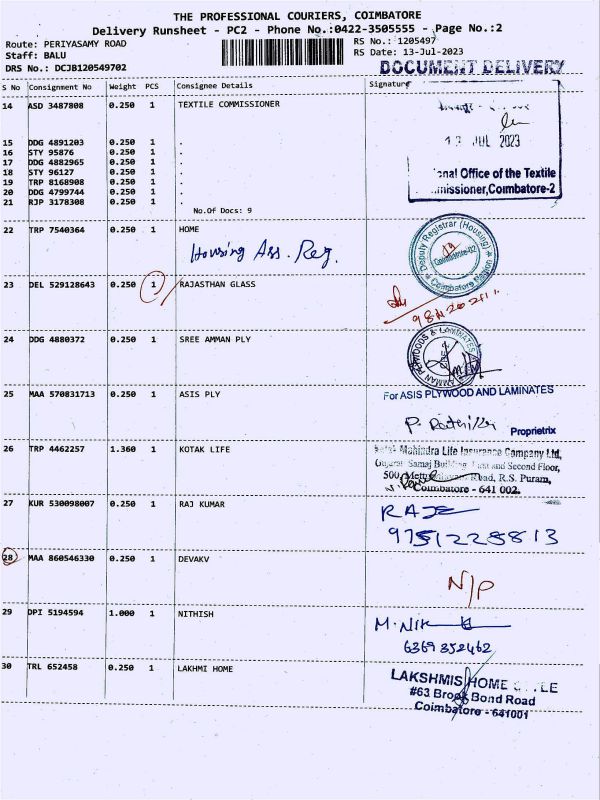 THE PROFESSIONAL COURIERS, COIMBATORE
Delivery Runsheet - PC2 - Phone No.:0422-3505555 - Page No.:2
Route: PERIYASAMY ROAD
Staff: BALU
DRS No.: DCJB120549702
RS No.: 1205497
RS Date: 13-Jul-2023
DOCUMENT DELIVERY
S No Consignment No Weight PCS Consignee Details Signature
14 ASD 3487808 0.250 1 TEXTILE COMMISSIONER
15 DDG 4891203 0.250 1 .
16 STY 95876 0.250 1 .
17 DDG 4882965 0.250 1 .
18 STY 96127 0.250 1 .
19 TRP 8168908 0.250 1 .
20 DDG 4799744 0.250 1 .
21 RJP 3178308 0.250 1 .
No.Of Docs: 9
JUL 2023
Office of the Textile
Coimbatore-2
22 TRP 7540364 0.250 1 HOME
Housing Ass. Reg.
Deputy Registrar (Housing)
Coimbatore
23 DEL 529128643 0.250 1 RAJASTHAN GLASS
24 DDG 4880372 0.250 1 SREE AMMAN PLY
AMMAN PLYWOODS & LAMINATES
25 MAA 570831713 0.250 1 ASIS PLY
For ASIS PLYWOOD AND LAMINATES
Proprietrix
26 TRP 4462257 1.360 1 KOTAK LIFE
Mahindra Life Insurance Company Ltd,
Gujarat Samaj Building, and Second Floor,
500, Road, R.S. Puram,
Coimbatore - 641 002.
27 KUR 530098007 0.250 1 RAJ KUMAR
RAJ
9751228813
28 MAA 860546330 0.250 1 DEVAKV
N/P
29 DPI 5194594 1.000 1 NITHISH
6369352462
30 TRL 652458 0.250 1 LAKHMI HOME
LAKSHMIS HOME
#63 Brook Bond Road
Coimbatore - 641001